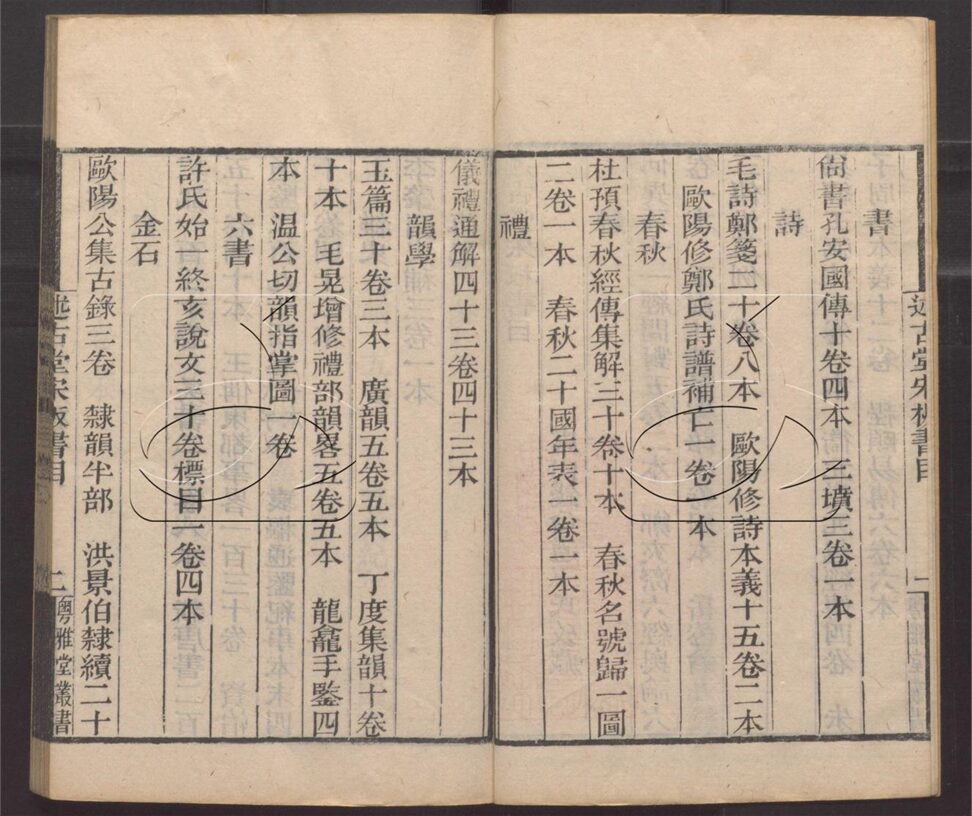 述古堂宋板書目
一
書
尙書孔安國傳十卷四本　三墳三卷一本
詩
毛詩鄭箋二十卷八本　歐陽修詩本義十五卷二本
歐陽修鄭氏詩譜補亡一卷一本
春秋
杜預春秋經傳集解三十卷十本　春秋名號歸一圖
二卷一本　春秋二十國年表一卷一本
禮
儀禮通解四十三卷四十三本
韻學
玉篇三十卷三本　廣韻五卷五本　丁度集韻十卷
十本　毛晃增修禮部韻畧五卷五本　龍龕手鑒四
本　溫公切韻指掌圖一卷
六書
許氏始終亥說文三十卷標目一卷四本
金石
歐陽公集古錄三卷　隸韻半部　洪景伯隸續二十
述古堂宋板書目
二
粵雅堂叢書